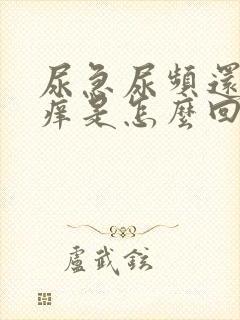 尿急尿頻還
痒是怎麼回
盧武鉉